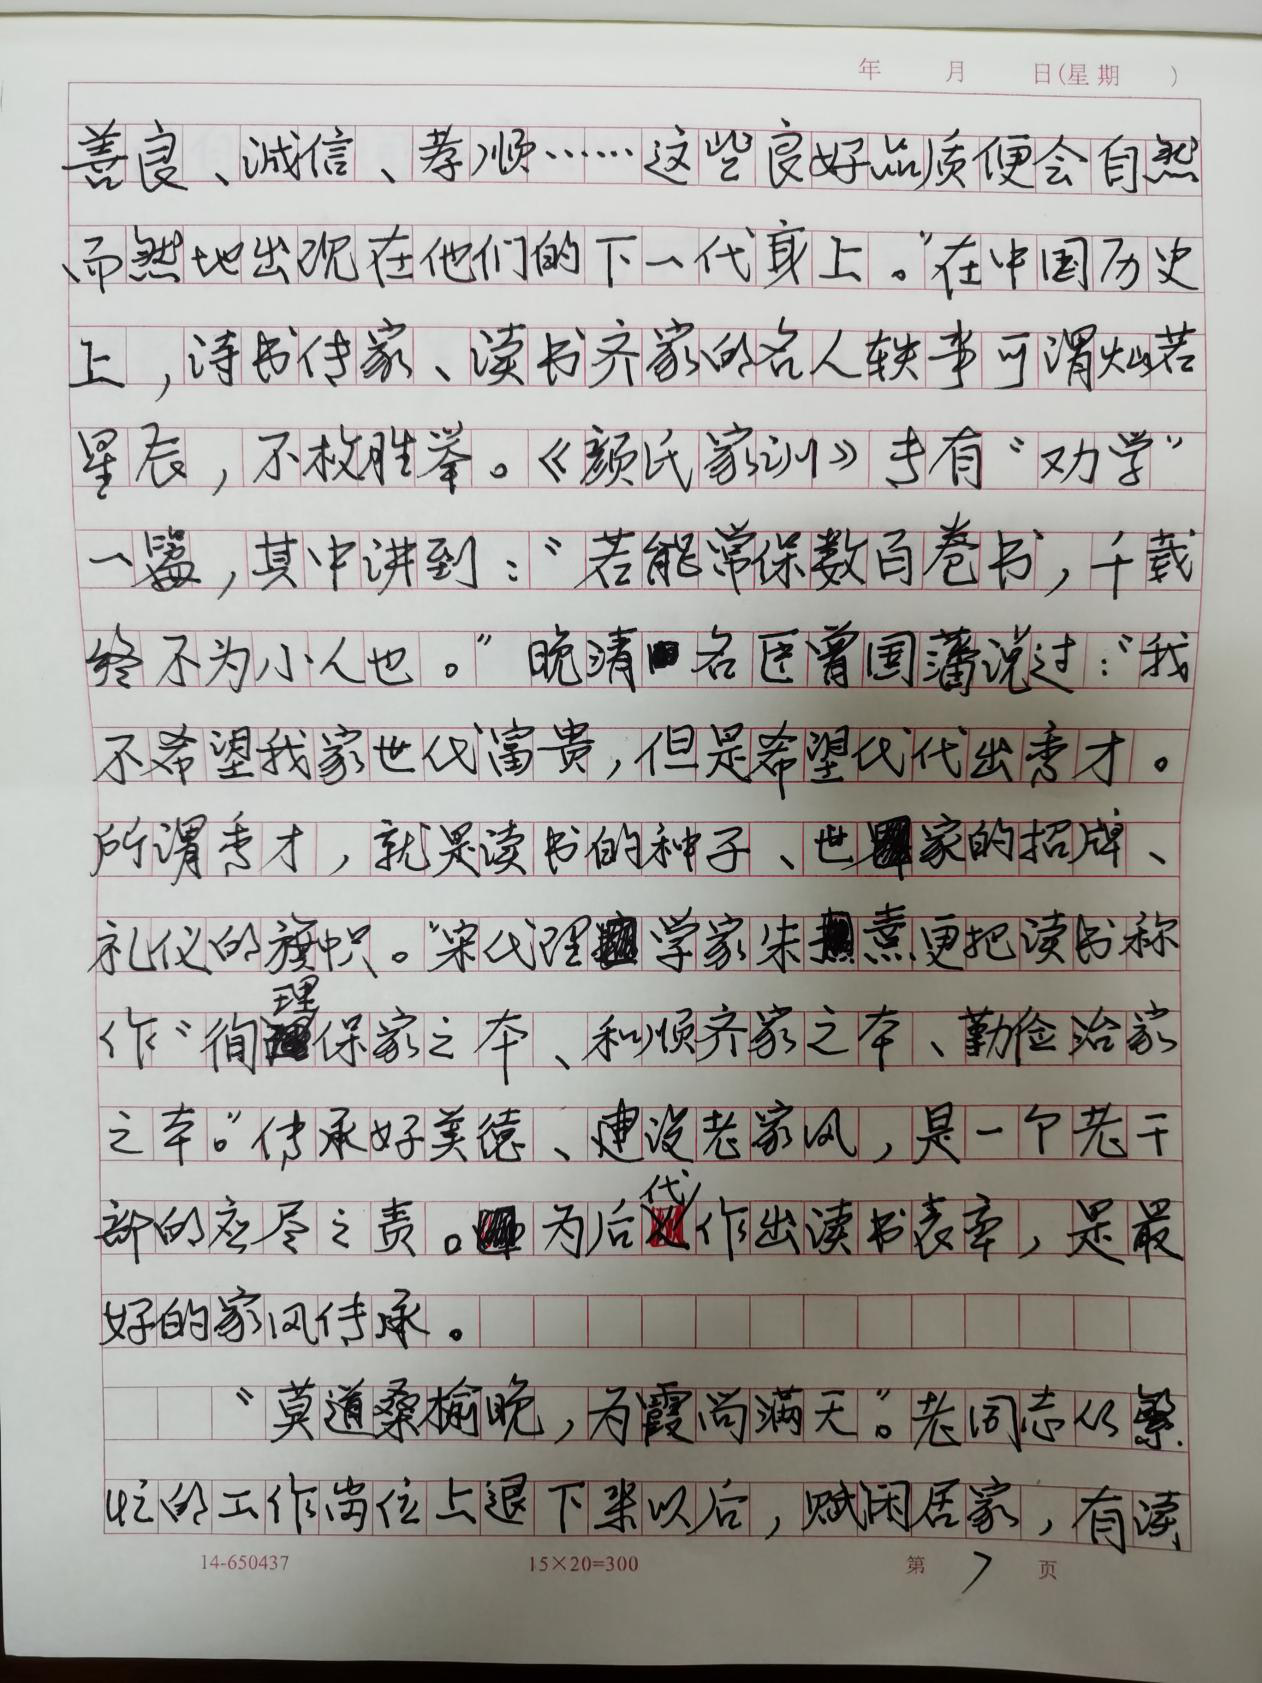 年 月 日(星期 )
善良、诚信、孝顺……这些良好品质便会自然
而然地出现在他们的下一代身上。"在中国历史
上，诗书传家、读书齐家的名人轶事可谓灿若
星辰，不枚胜举。《颜氏家训》专有"劝学"
一篇，其中讲到："若能常保数百卷书，千载
终不为小人也。"晚清名臣曾国藩说过："我
不希望我家世代富贵，但是希望代代出秀才。
所谓秀才，就是读书的种子、世家的招牌、
礼仪的旗帜。"宋代理学家朱熹更把读书称
作"徇理保家之本、和顺齐家之本、勤俭治家
之本。"传承好美德、建设老家风，是一个老干
部的应尽之责。为后代作出读书表率，是最
好的家风传承。
"莫道桑榆晚，为霞尚满天"。老同志从繁
忙的工作岗位上退下来以后，赋闲居家，有读
14-650437 15×20=300 第 7 页